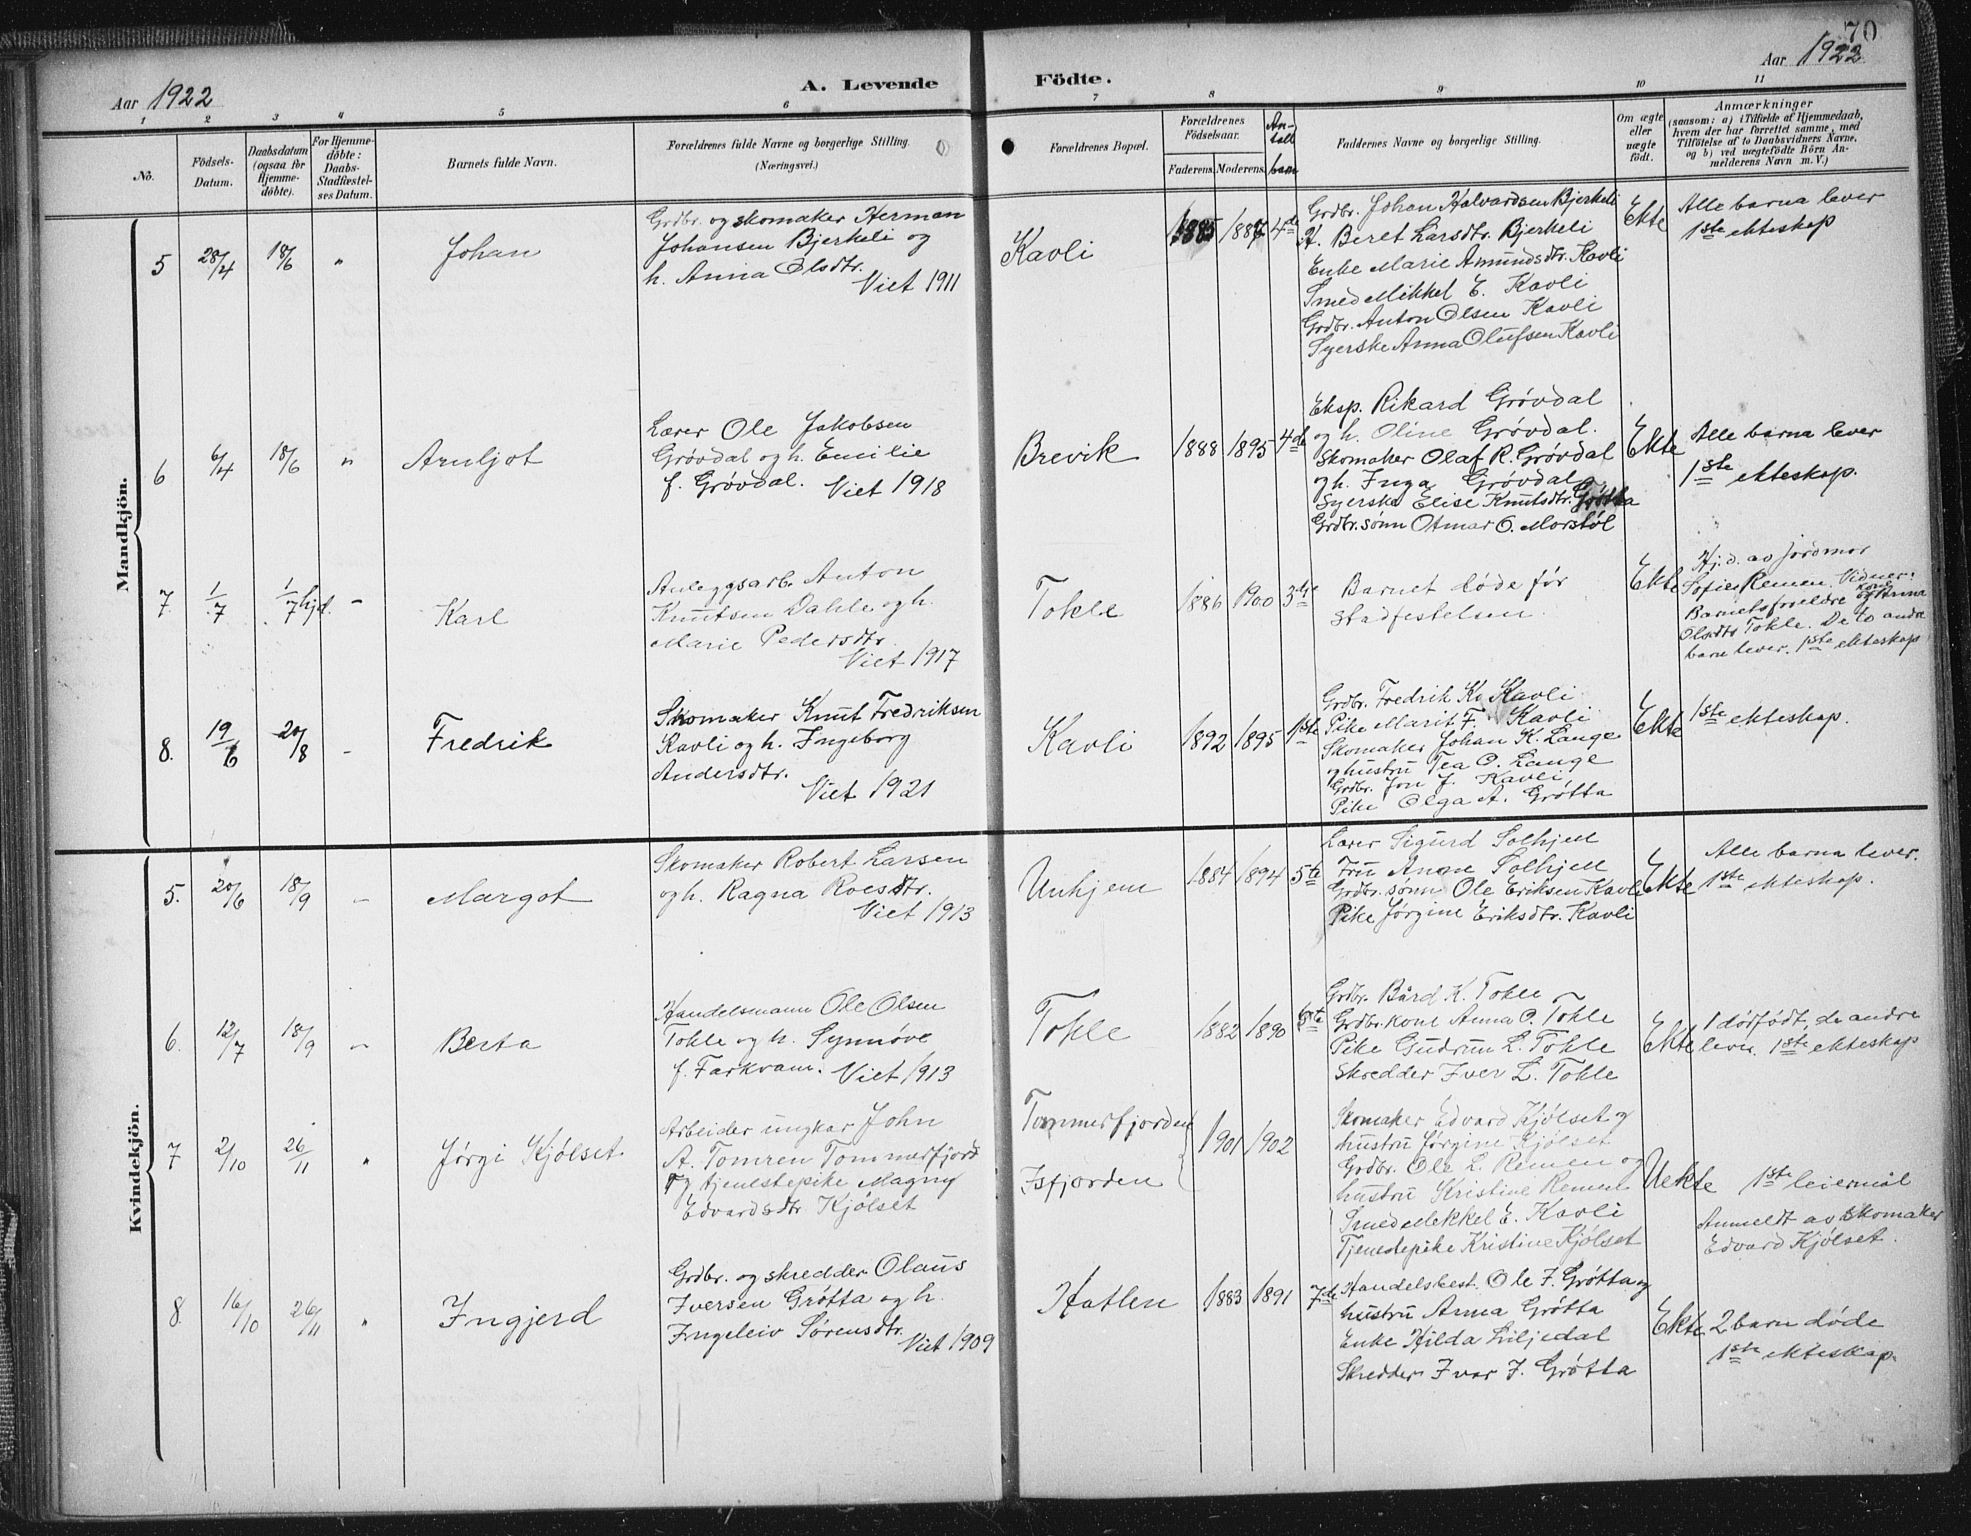 70
Aar 1922
A. Levende Födte.
Aar 1922
1 2 3 4 5 6 7 8 9 10 11
No.
Födsels-
Datum.
Daabsdatum
(ogsaa for
Hjemme-
döbte).
For Hjemme-
döbte:
Daabs-
Stadfæstel-
ses Datum.
Barnets fulde Navn.
Forældrenes fulde Navne og borgerlige Stilling.
(Næringsvei.)
Forældrenes Bopæl.
Forældrenes
Födselsaar.
Faderens. Moderens.
An-
tall
barn
Faddernes Navne og borgerlige Stilling.
Om ægte
eller
uægte
födt.
Anmærkninger
(saasom: a) i Tilfælde af Hjemmedaab,
hvem der har forrettet samme, med
Tilföielse af to Daabsvidners Navne,
og b) ved uægtefödte Börn An-
melderens Navn m. V.)
Mandkjön.
5 28/4 18/6 " Johan
Grdbr. og skomaker Herman
Johansen Bjerkeli og
h. Anna Olsdtr.
Viet 1911
Kavli
1885 1887 4de
Grdbr. Johan Halvardsen Bjerkeli
H. Beret Larsdtr. Bjerkeli
Enke Marie Amundsdtr. Kavli
Smed Mikkel E. Kavli
Grdbr. Anton Olsen Kavli
Syerske Anna Olufsen Kavli
Ekte
Alle barna lever
1ste ekteskap
6 6/4 18/6 " Arnljot
Lærer Ole Jakobsen
Grøvdal og h. Emilie
f. Grøvdal. Viet 1918
Brevik
1888 1895 4de
Eksp. Rikard Grøvdal
og h. Oline Grøvdal.
Skomaker Olaf R. Grøvdal
og h. Inga Grøvdal
Syerske Elise Knutsdtr. Grøtta
Grdbr. sønn Otmar O. Morstøl
Ekte
Alle barna lever
1ste ekteskap.
7. 1/7 1/7 hjd. - Karl
Anleggsarb. Anton
Knutsen Dahle og h.
Marie Pedersdtr.
Viet 1917
Tokle
1886 1900 3dje
Barnet døde før
stadfestelsen
Ekte
Hj.d. av jordmor
Sofie Remen. Vidner:
Barnets foreldre og kone Anna
Olsdtr Tokle. De to andre
barn lever. 1ste ekteskap
8. 19/6 20/8 - Fredrik
Skomaker Knut Fredriksen
Kavli og h. Ingeborg
Andersdtr.
Viet 1921
Kavli
1892 1895 1ste
Grdbr. Fredrik K. Kavli
Pike Marit F. Kavli
Skomaker Johan K. Lange
og hustru Tea O. Lange
Grdbr. Jon J. Kavli
Pike Olga A. Grøtta
Ekte
1ste ekteskap.
Kvindekjön.
5. 20/6 18/9 - Margot
Skomaker Robert Larsen
og h. Ragna Roesdtr.
Viet 1913
Unhjem
1884 1894 5te
Lærer Sigurd Solhjell
Fru Anne Solhjell
Grdbr. sønn Ole Eriksen Kavli
Pike Jørgine Eriksdtr. Kavli
Ekte
Alle barna lever.
1ste ekteskap.
6. 12/7 18/9 - Berta
Handelsmann Ole Olsen
Tokle og h. Synnøve
f. Farkvam. Viet 1913
Tokle
1882 1890
Grdbr. Bård K. Tokle
Grdbr. kone Anna O. Tokle
Pike Gudrun L. Tokle
Skredder Iver L. Tokle
Ekte
1 dødfødt, de andre
lever. 1ste ekteskap
7 2/10 26/11 " Jørgi Kjølset
Arbeider ungkar John
A. Tomren Tommerfjord
og tjenestepike Magny
Edvardsdtr Kjølset
Tommerfjorden
Isfjorden
1901 1902
Skomaker Edvard Kjølset og
hustru Jørgine Kjølset
Grdbr. Ole L. Remen og
hustru Kristine Remen
Smed Mekkel E. Kavli
Tjenestepike Kristine Kjølset
Uekte
1ste leiermål
Anmeldt av skomaker
Edvard Kjølset.
8. 16/10 26/11 " Ingjerd
Grdbr. og skredder Olaus
Iversen Grøtta og h.
Ingeleiv Sørensdtr.
Viet 1909
Hatlen
1883 1891 7de
Handelsbest. Ole I. Grøtta og
hustru Anna Grøtta
Enke Hilda Liljedal
Skredder Ivar I. Grøtta
Ekte
2 barn døde
1ste ekteskap.